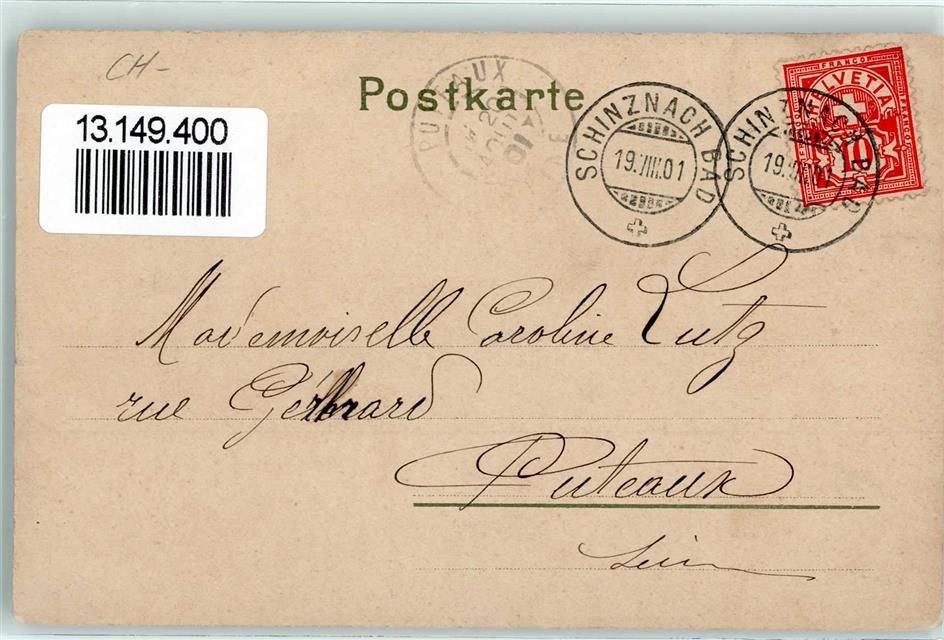 CH-
Postkarte
13.149.400
PUTEAUX
01
SCHINZNACH BAD
19.VIII.01
SCHINZNACH BAD
19.VIII.01
FRANCO
HELVETIA
10
Mademoiselle Caroline Lutz
rue Gérhard
Puteaux
Seine